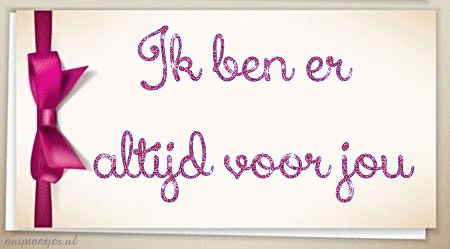 Ik ben er
altijd voor jou
animaatjes.nl